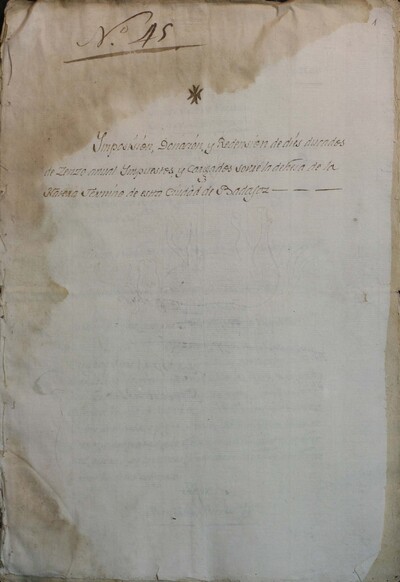 N.º 45
Imposizión, Donazión, y Redension de diés ducados
de Zenzo anual Impuestos y Cargados sobre la dehesa de la
termino de esta Ciudad de Badajoz